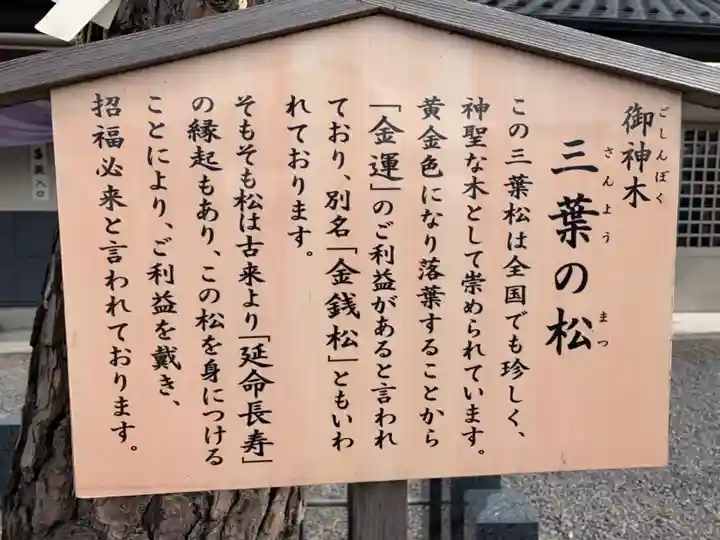 御神木
ごしんぼく
三葉の松
さんよう まつ
この三葉松は全国でも珍しく、
神聖な木として崇められています。
黄金色になり落葉することから
「金運」のご利益があると言われ
ており、別名「金銭松」ともいわ
れております。
そもそも松は古来より「延命長寿」
の縁起もあり、この松を身につける
ことにより、ご利益を戴き、
招福必来と言われております。